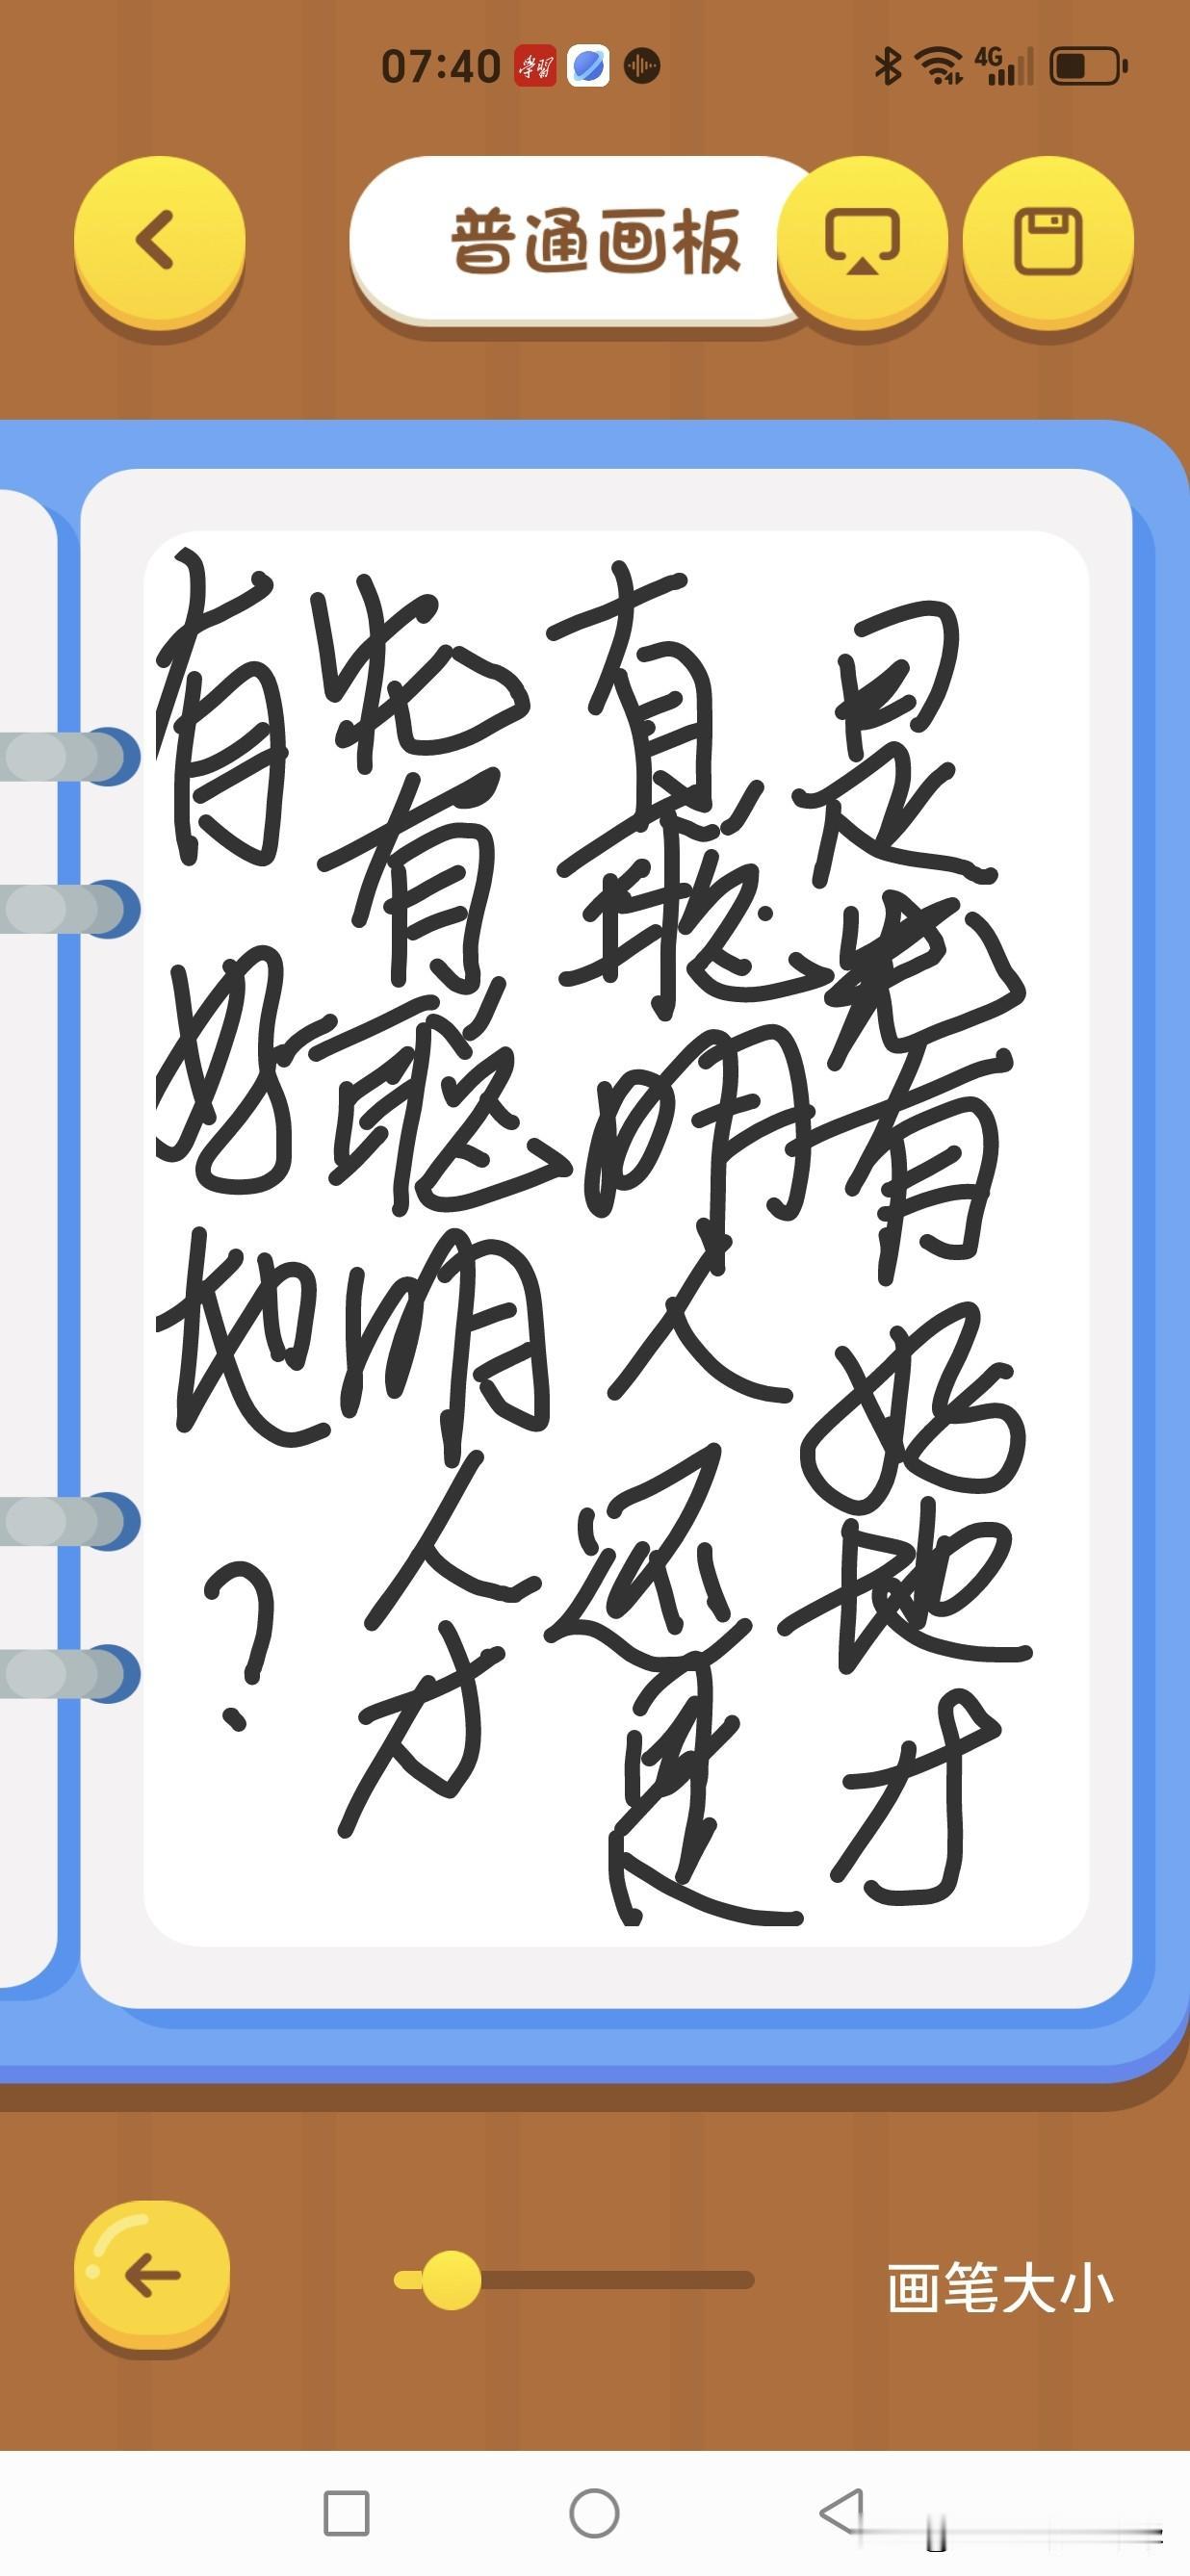 07:40
学習
4G
普通画板
是先有好地才
有聪明人还是
先有聪明人才
有好地?
画笔大小